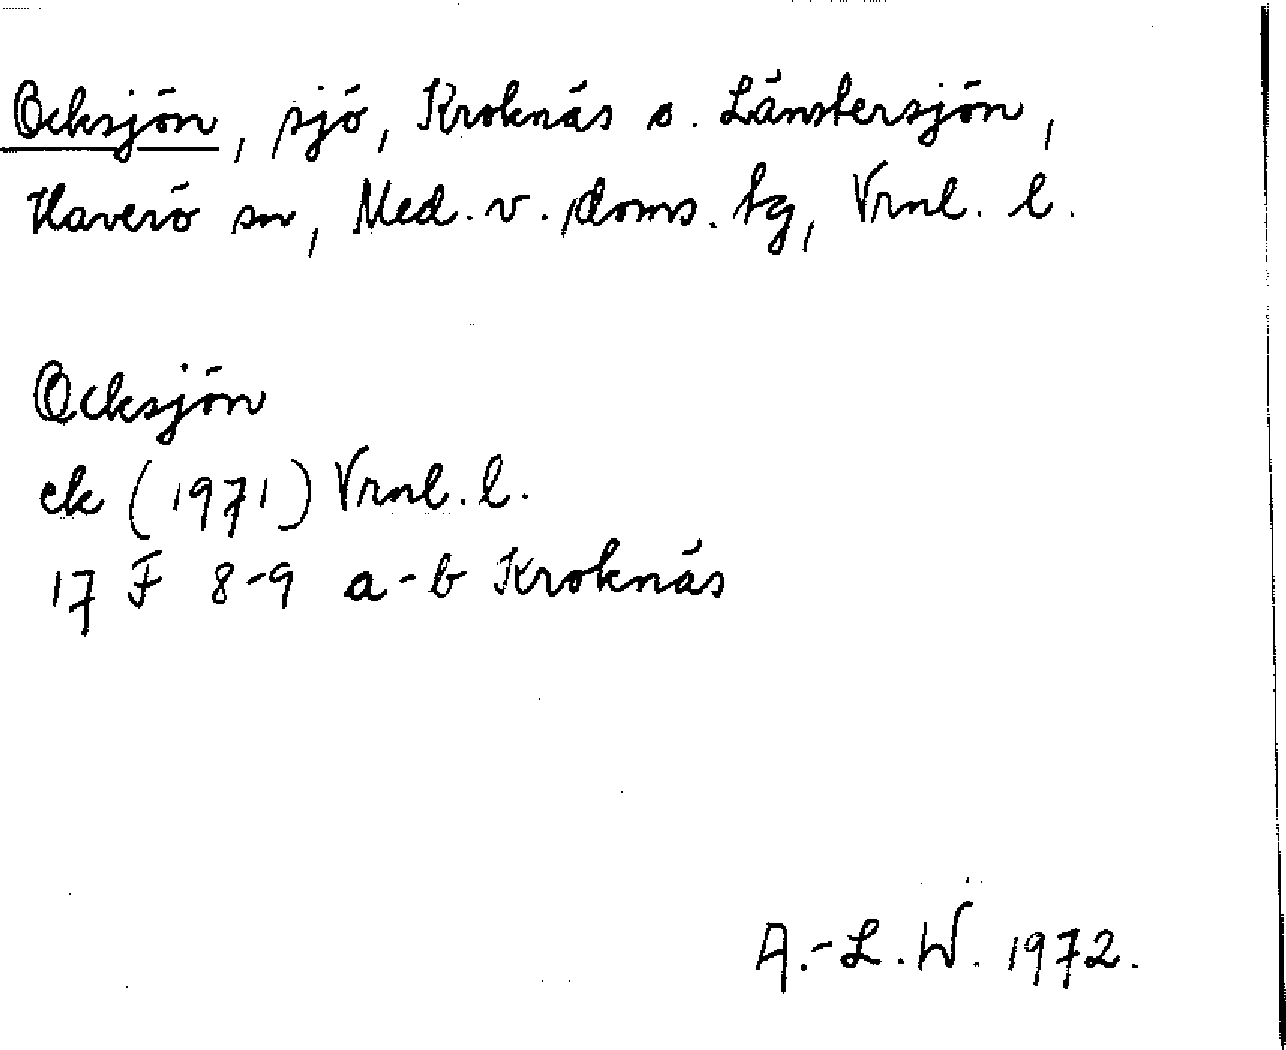 Ocksjön, sjö, Kroknäs o. Länstersjön,
Haverö sn, Med. v. doms. tg, Vrnl. l.
Ocksjön
ek (1971) Vrnl. l.
17 F 8-9 a-b Kroknäs
A.-L.W. 1972.